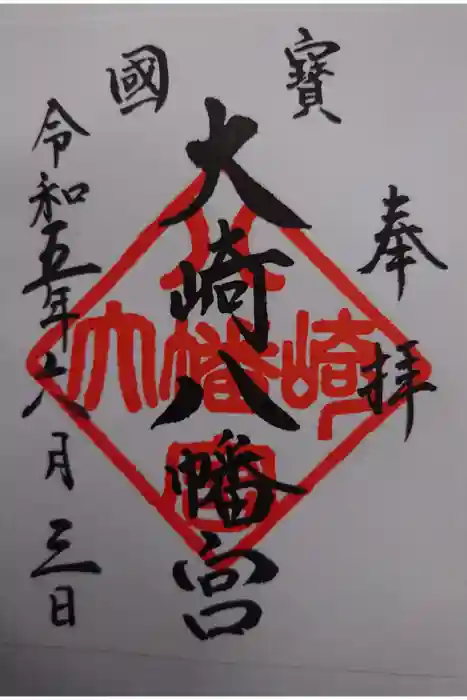 寶國
奉拝
大崎八幡宮
令和五年六月三日